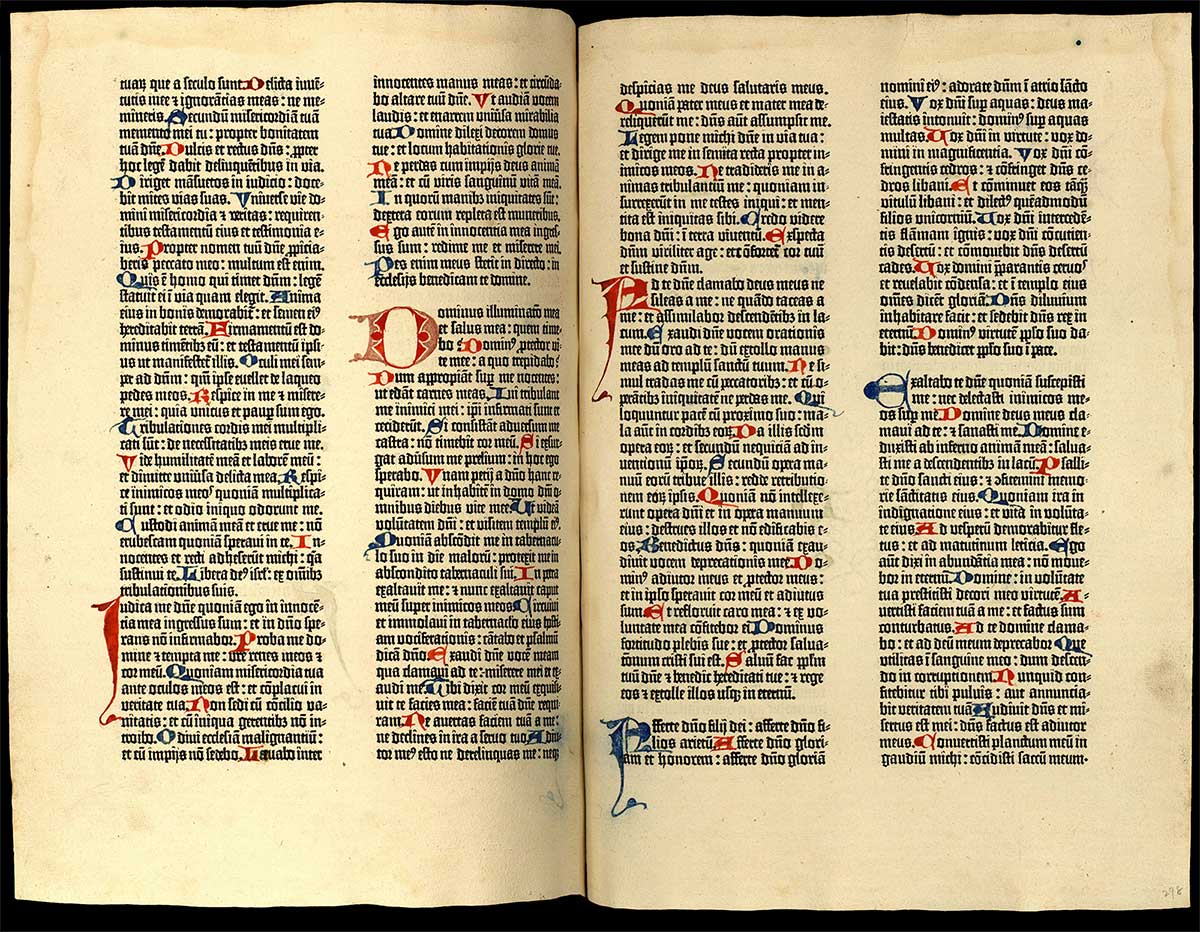 tuaꝝ que a seculo sunt. Delicta iuvē-
tutis mee ⁊ ignorātias meas : ne me-
mineris. Secundū misericordiā tuā
memento mei tu : propter bonitatem
tuā dn̄e. Dulcis et rectus dn̄s : ꝓpter
hoc legē dabit delinquētibus in via.
Diriget māsuetos in iudicio : doce-
bit mites vias suas. Universe vie do-
mini misericordia ⁊ veritas : requiren-
tibus testamentū eius et testimonia e-
ius. Propter nomen tuū dn̄e ꝓpicia-
beris peccato meo : multum est enim.
Quis ē homo qui timet dn̄m : legē
statuit ei ī via quam elegit. Anima
eius in bonis demorabit̄ : et semen eiꝰ
hereditabit terrā. Firmamentū est do-
minus timētibꝫ eū : et testamentū ip̄si-
us ut manifestet̄ illis. Oculi mei sem-
per ad dn̄m : qm̄ ip̄se evellet de laqueo
pedes meos. Respice in me ⁊ misere-
re mei : quia unicus et paup̲ sum ego.
Tribulationes cordis mei multipli-
cati sūt : de necessitatibꝫ meis erue me.
Vide humilitatē meā et laborē meū :
et dimitte univ̄sa delicta mea. Respi-
ce inimicos meoˢ quoniam multiplica-
ti sunt : et odio iniquo oderunt me.
Custodi animā meā et erue me : nō
erubescam quoniā speravi in te. In-
nocentes et recti adheserūt michi : q̄a
sustinui te. Libera deꝰ isrl̄ : ex om̄ibꝫ
tribulationibus suis.
Iudica me dn̄e quoniā ego in innocē-
tia mea ingressus sum : et in dn̄o spe-
rans nō infirmabor. Proba me do-
mine ⁊ tempta me : ure renes meos ⁊
cor meū. Quoniam misericordia tua
ante oculos meos est : et cōplacui in
veritate tua. Non sedi cū cōcilio va-
nitatis : et cū iniqua gerentibꝫ nō in-
troibo. Odivi ecclesiā malignantiū :
et cū impijs nō sedebo. Lavabo inter
innocentes manus meas : et circūda-
bo altare tuū dn̄e. Ut audiā vocem
laudis : et enarrem univ̄sa mirabilia
tua. Domine dilexi decorem domus
tue : et locum habitationis glorie tue.
Ne perdas cum impijs deus animā
meā : et cū viris sanguinū vitā meā.
In quorū manibꝫ iniquitates sūt :
dextera eorum repleta est muneribus.
Ego autē in innocentia mea ingres-
sus sum : redime me et miserere mei.
Pes enim meus stetit in directo : in
ecclesijs benedicam te domine.
Dominus illuminatio mea
et salus mea : quem time-
bo. Dominꝰ ꝓtector vi-
te mee : a quo trepidabo?
Dum appropiāt sup̲ me nocentes :
ut edāt carnes meas. Qui tribulant
me inimici mei : ip̄i infirmati sunt et
ceciderūt. Si consistāt adversum me
castra : nō timebit cor meū. Si exsur-
gat adv̄sum me prelium : in hoc ego
sperabo. Unam petij a dn̄o hanc re-
quiram : ut inhabitē in domo dn̄i o-
mnibus diebus vite mee. Ut videā
volūtatem dn̄i : et visitem templū eiꝰ.
Quoniā abscōdit me in tabernacu-
lo suo in die malorū : protexit me in
abscondito tabernaculi sui. In petra
exaltavit me : ⁊ nunc exaltavit caput
meū super inimicos meos. Circuivi
et immolavi in tabernac̄lo eius hosti-
am vociferationis : cātabo et psalmū
dicā dn̄o. Exaudi dn̄e vocē meam
qua clamavi ad te : miserere mei et ex-
audi me. Tibi dixit cor meū exquisi-
vit te facies mea : faciē tuā dn̄e requi-
ram. Ne avertas faciem tuā a me :
ne declines in ira a servo tuo. Adiu-
tor meꝰ esto ne derelinquas me : neqꝫ
despicias me deus salutaris meus.
Quoniā pater meus et mater mea de-
reliquerūt me : dn̄s aūt assumpsit me.
Legem pone michi dn̄e in via tua :
et dirige me in semita recta propter in-
imicos meos. Ne tradideris me in a-
nimas tribulantiū me : quoniam in-
surrexerūt in me testes iniqui : et men-
tita est iniquitas sibi. Credo videre
bona dn̄i : ī terra viventiū. Exspecta
dn̄m viriliter age : et ꝯfortet̄ cor tuū
et sustine dn̄m.
Ad te dn̄e clamabo deus meus ne
sileas a me : ne quādo taceas a
me : et assimilabor descendētibꝫ in la-
cum. Exaudi dn̄e vocem orationis
mee dū oro ad te : dū extollo manus
meas ad templū sanctū tuum. Ne si-
mul tradas me cū peccatoribꝫ : et cū o-
perātibꝫ iniquitatē ne perdas me. Qui
loquuntur pacē cū proximo suo : ma-
la aūt in cordibꝫ eoꝝ. Da illis scd̄m
opera eoꝝ : et secundū nequiciā ad in-
ventionū ip̄oꝝ. Secundū opera ma-
nuū eorū tribue illis : redde retributio-
nem eoꝝ ip̄sis. Quoniā nō intellexe-
runt opera dn̄i et in opera manuum
eius : destrues illos et nō edificabis e-
os. Benedictus dn̄s : quoniā exau-
divit vocem deprecationis mee. Do-
minꝰ adiutor meus et ꝓtector meus :
et in ip̄so speravit cor meū et adiutus
sum. Et refloruit caro mea : et ex vo-
luntate mea cōfitebor ei. Dominus
fortitudo plebis sue : et ꝓtector salva-
tionum cristi sui est. Salvū fac pp̄lm
tuū dn̄e ⁊ benedic hereditati tue : et rege
eos ⁊ extolle illos usqꝫ in eternū.
Afferte dn̄o filij dei : afferte dn̄o fi-
lios arietū. Afferte dn̄o glori-
am et honorem : afferte dn̄o gloriā
nomini eiꝰ : adorate dn̄m ī atrio sācto
eius. Vox dn̄i sup̲ aquas : deus ma-
iestatis intonuit : dominꝰ sup̲ aquas
multas. Vox dn̄i in virtute : vox do-
mini in magnificentia. Vox dn̄i cō-
fringentis cedros : ⁊ cōfringet dn̄s ce-
dros libani. Et cōminuet eos tāqꝫ
vitulū libani : et dilectꝰ quēadmodū
filius unicorniū. Vox dn̄i intercedē-
tis flāmam ignis : vox dn̄i cōcutien-
tis desertū : et cōmovebit dn̄s desertū
cades. Vox domini p̲parantis cervoˢ
et revelabit cōdensa : et ī templo eius
om̄es dicēt gloriā. Dn̄s diluvium
inhabitare facit : et sedebit dn̄s rex in
eternū. Dominꝰ virtutē pp̄lo suo da-
bit : dn̄s benedicet pp̄lo suo ī pace.
Exaltabo te dn̄e quoniā suscepisti
me : nec delectasti inimicos me-
os sup̲ me. Domine deus meus cla-
mavi ad te : ⁊ sanasti me. Domine e-
duxisti ab inferno animā meā : salvas-
ti me a descendentibꝫ in lacū. Psalli-
te dn̄o sancti eius : ⁊ cōfitemini memo-
rie sāctitatis eius. Quoniam ira in
indignatione eius : et vita in volūta-
te eius. Ad vesperū demorabitur fle-
tus : et ad matutinum leticia. Ego
aūt dixi in abundātia mea : nō move-
bor in eternū. Domine : in volūtate
tua prestitisti decori meo virtutē. A-
vertisti faciem tuā a me : et factus sum
conturbatus. Ad te domine clama-
bo : et ad deū meum deprecabor. Que
utilitas ī sanguine meo : dum descen-
do in corruptionem? Nunquid con-
fitebitur tibi pulvis : aut annuncia-
bit veritatem tuā? Audivit dn̄s et mi-
sertus est mei : dn̄s factus est adiutor
meus. Convertisti planctum meū in
gaudiū michi : cōcidisti saccū meum.
298